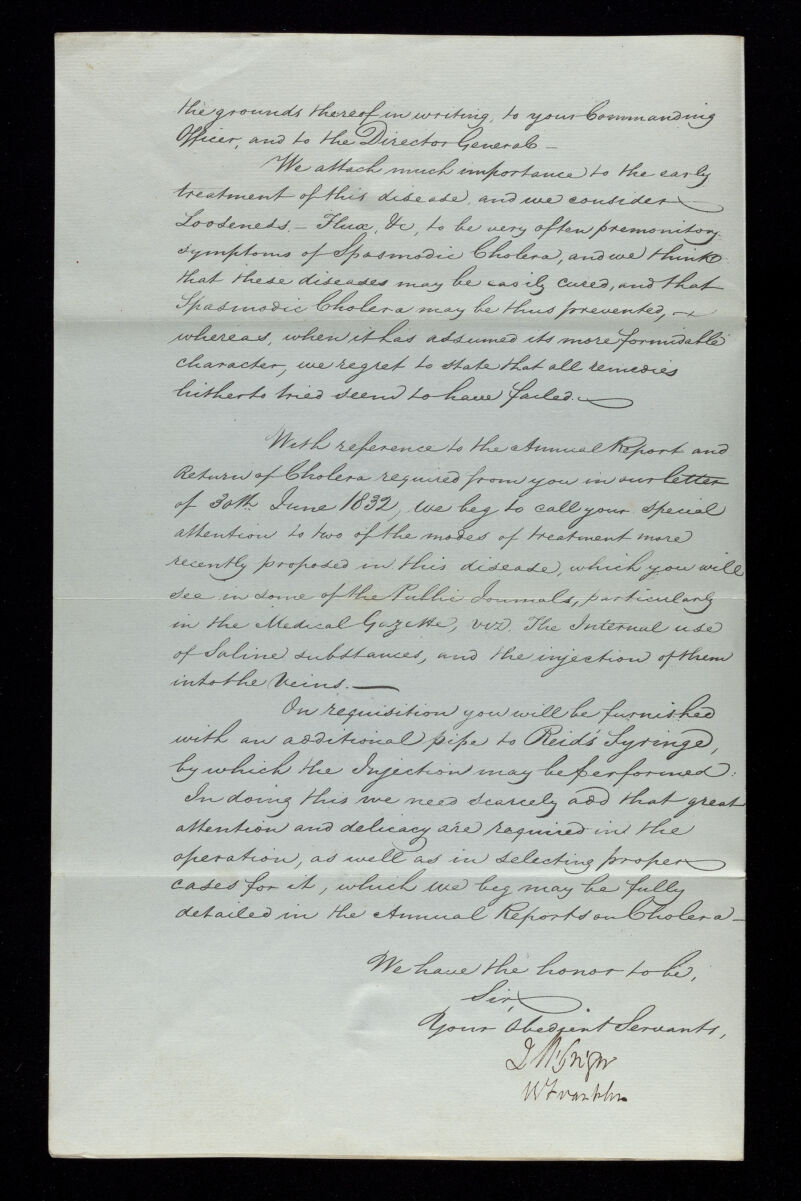 the grounds thereof in writing, to your Commanding
Officer, and to the Director General –
We attach much importance to the early
treatment of this disease, and we consider
Looseness, – Flux, &c, to be very often premonitory
symptoms of Spasmodic Cholera, and we think
that these diseases may be easily cured, and that
Spasmodic Cholera may be thus prevented, –
whereas, when it has assumed its more formidable
character, we regret to state that all remedies
hitherto tried seem to have failed. –
With reference to the Annual Report and
Return of Cholera required from you in our letter
of 30th June 1832, we beg to call your special
attention to two of the modes of treatment more
recently proposed in this disease, which you will
see in some of the Public Journals, particularly
in the Medical Gazette, viz. The Internal use
of Saline substances, and the injection of them
into the Veins. —
On requisition you will be furnished
with an additional pipe to Reid's Syringe,
by which the Injection may be performed:
In doing this we need scarcely add that great
attention and delicacy are required in the
operation, as well as in selecting proper
cases for it, which we beg may be fully
detailed in the Annual Reports on Cholera –
We have the honor to be,
Sir,
Your Obedient Servants,
J McGrigor
W Franklin